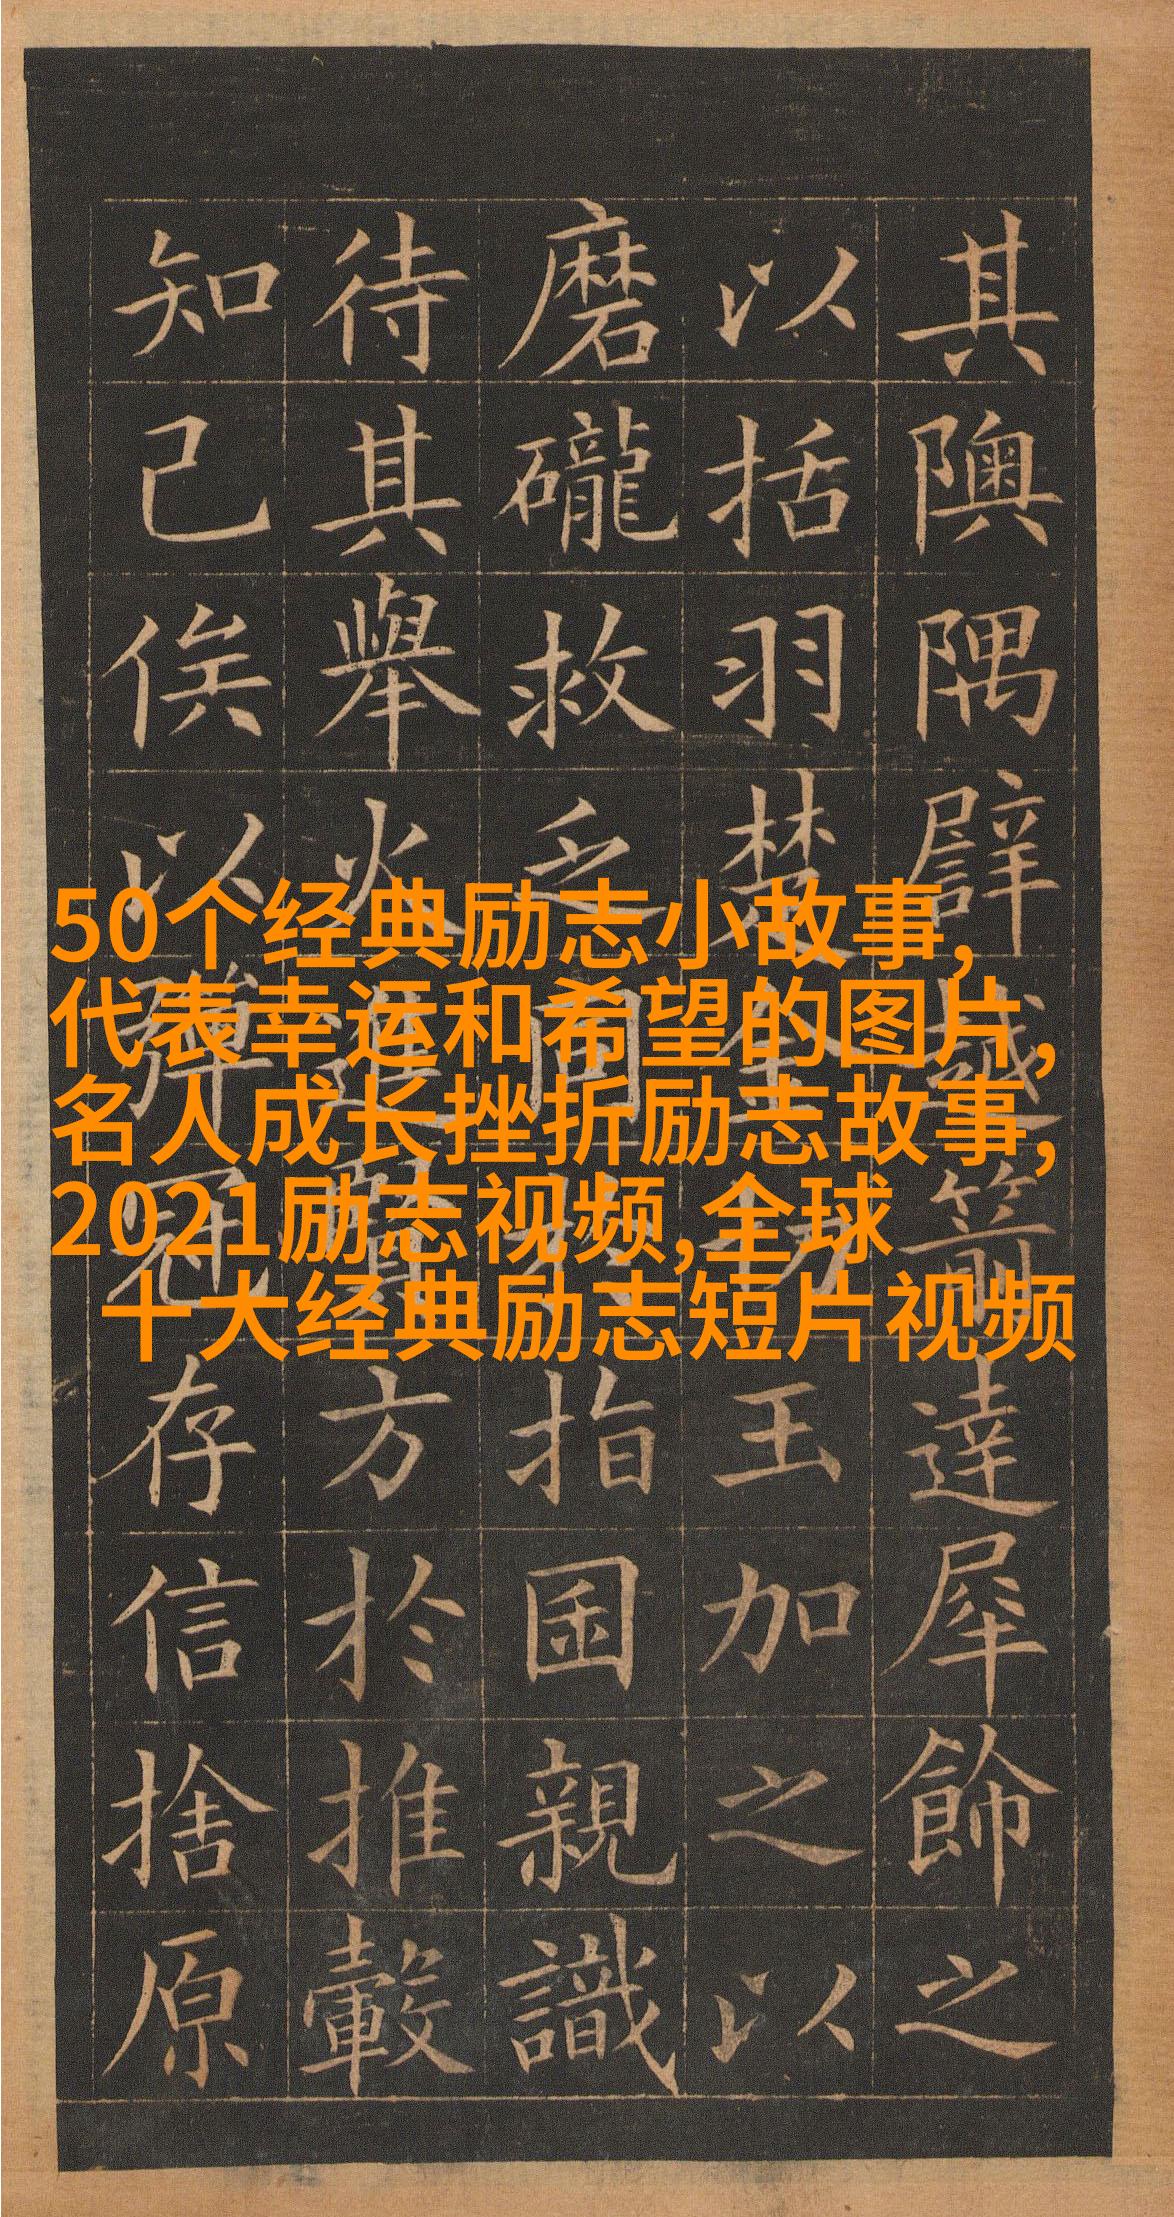 其隩隅譬越箭達犀飾之
以括羽楚金切玉加之以
磨礲救乏同於指囷親識
待其舉火進賢方於推轂
知己俟以彈冠存信捨原
50个经典励志小故事,
代表幸运和希望的图片,
名人成长挫折励志故事,
2021励志视频,全球
十大经典励志短片视频